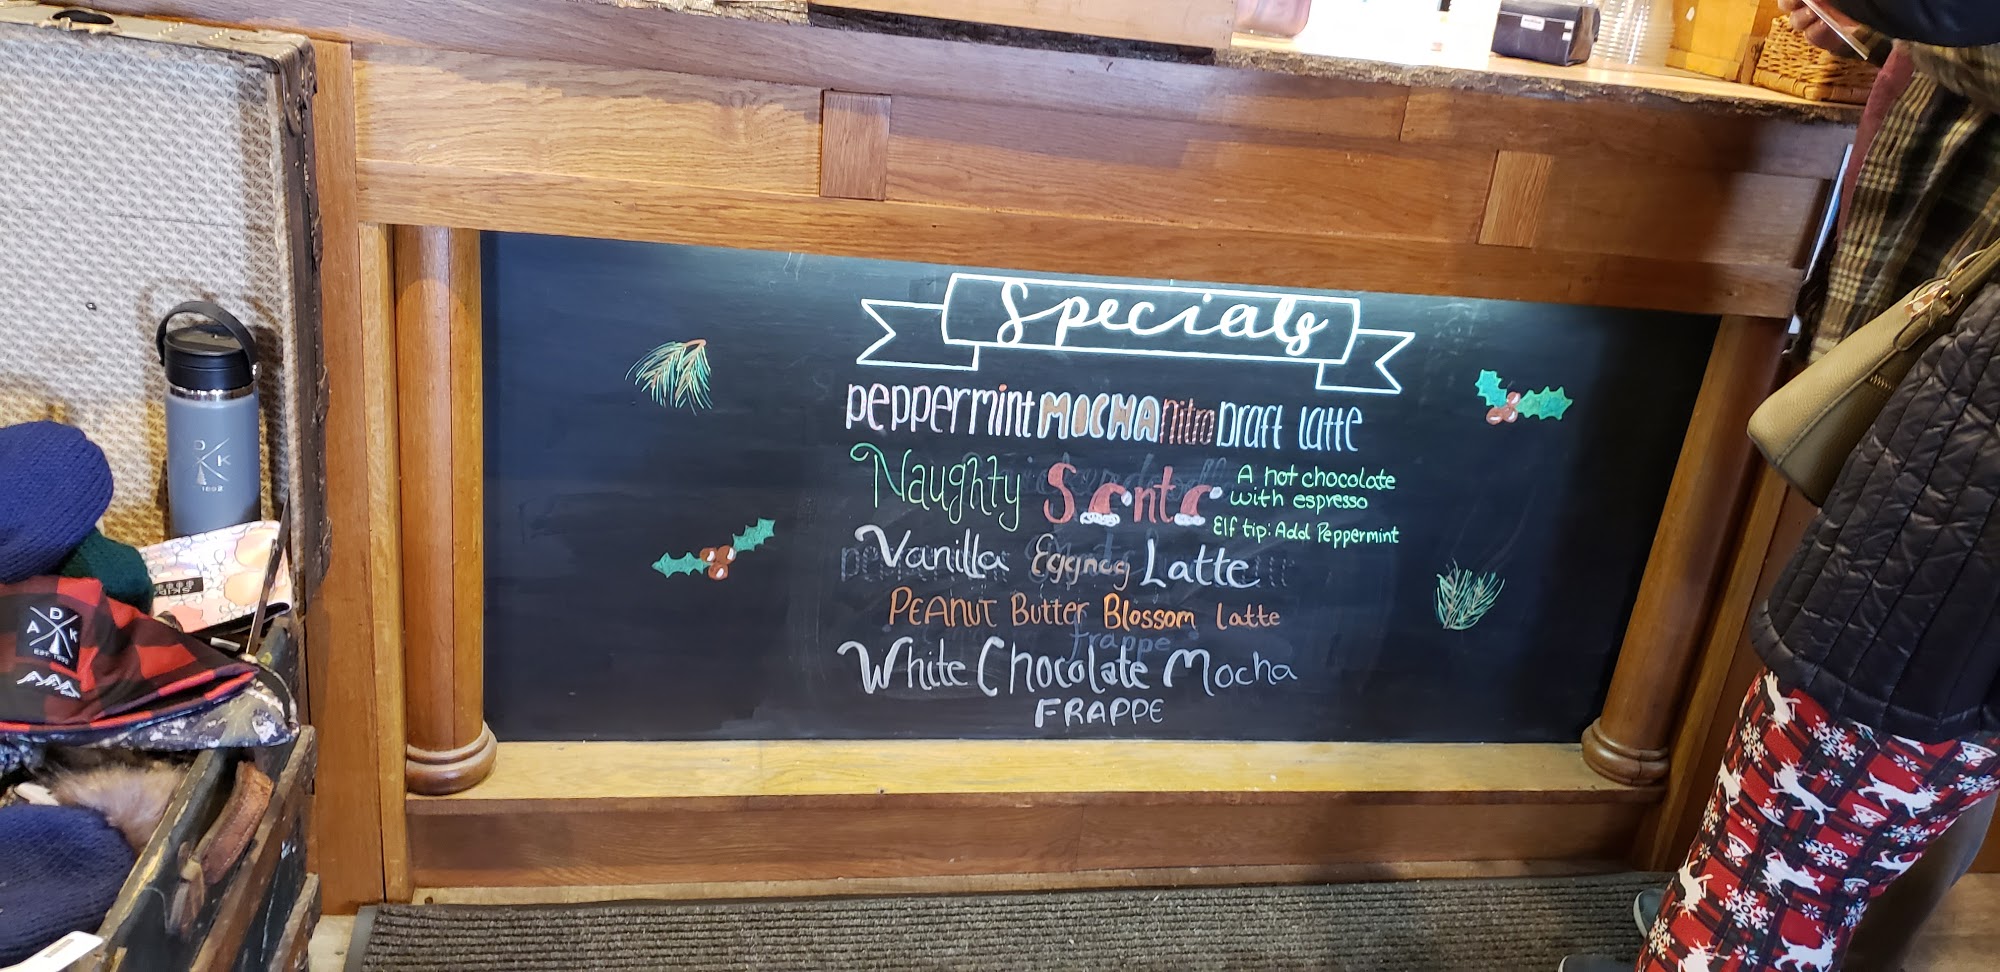 Specials
peppermint MOCHA nitro Draft Latte
Naughty Santa
A hot chocolate
with espresso
Elf tip: Add Peppermint
Vanilla Eggnog Latte
PEANUT Butter Blossom Latte
frappe
White Chocolate Mocha
FRAPPE
D
K
1892
D
A K
EST. 1892